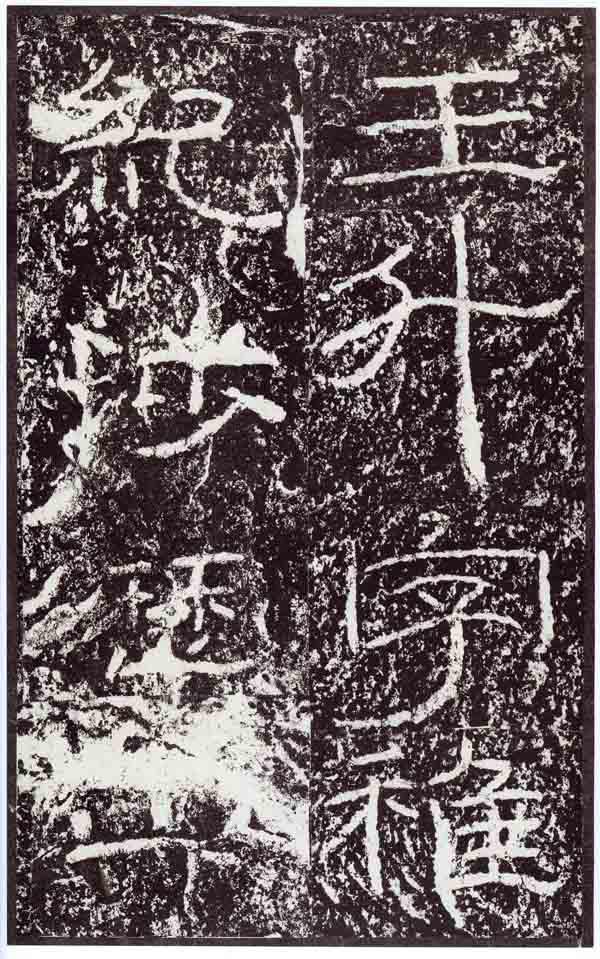 王升字稚
紀涉歷